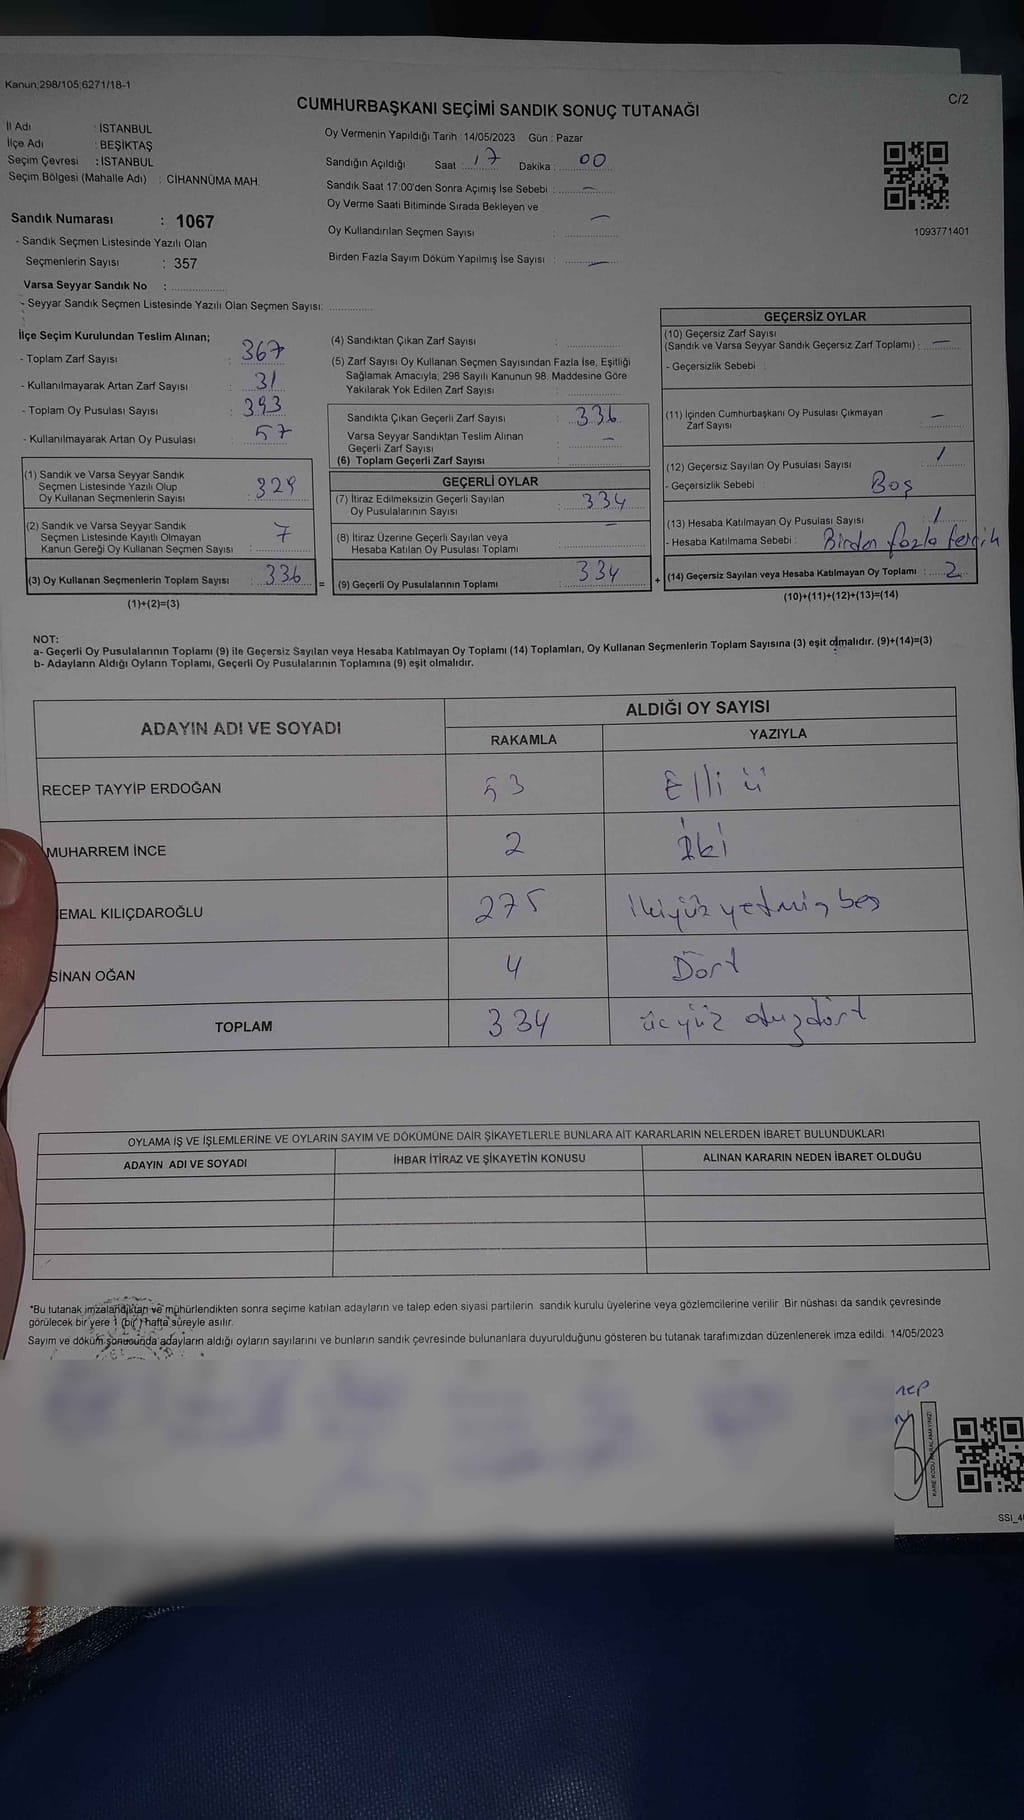 Kanun;298/105;6271/18-1
C/2
CUMHURBAŞKANI SEÇİMİ SANDIK SONUÇ TUTANAĞI
İl Adı : İSTANBUL
İlçe Adı : BEŞİKTAŞ
Seçim Çevresi : İSTANBUL
Seçim Bölgesi (Mahalle Adı) : CİHANNÜMA MAH.
Oy Vermenin Yapıldığı Tarih : 14/05/2023 Gün : Pazar
Sandığın Açıldığı Saat : 17 Dakika : 00
Sandık Saat 17:00'den Sonra Açımış İse Sebebi : —
Oy Verme Saati Bitiminde Sırada Bekleyen ve
Oy Kullandırılan Seçmen Sayısı : —
Birden Fazla Sayım Döküm Yapılmış İse Sayısı : —
1093771401
Sandık Numarası : 1067
- Sandık Seçmen Listesinde Yazılı Olan
Seçmenlerin Sayısı : 357
Varsa Seyyar Sandık No :
- Seyyar Sandık Seçmen Listesinde Yazılı Olan Seçmen Sayısı:
İlçe Seçim Kurulundan Teslim Alınan;
- Toplam Zarf Sayısı : 367
- Kullanılmayarak Artan Zarf Sayısı : 31
- Toplam Oy Pusulası Sayısı : 393
- Kullanılmayarak Artan Oy Pusulası : 57
(1) Sandık ve Varsa Seyyar Sandık
Seçmen Listesinde Yazılı Olup
Oy Kullanan Seçmenlerin Sayısı : 329
(2) Sandık ve Varsa Seyyar Sandık
Seçmen Listesinde Kayıtlı Olmayan
Kanun Gereği Oy Kullanan Seçmen Sayısı : 7
(3) Oy Kullanan Seçmenlerin Toplam Sayısı : 336 =
(1)+(2)=(3)
(4) Sandıktan Çıkan Zarf Sayısı :
(5) Zarf Sayısı Oy Kullanan Seçmen Sayısından Fazla İse, Eşitliği
Sağlamak Amacıyla, 298 Sayılı Kanunun 98. Maddesine Göre
Yakılarak Yok Edilen Zarf Sayısı :
Sandıkta Çıkan Geçerli Zarf Sayısı : 336
Varsa Seyyar Sandıktan Teslim Alınan
Geçerli Zarf Sayısı : —
(6) Toplam Geçerli Zarf Sayısı :
GEÇERLİ OYLAR
(7) İtiraz Edilmeksizin Geçerli Sayılan
Oy Pusulalarının Sayısı : 334
(8) İtiraz Üzerine Geçerli Sayılan veya
Hesaba Katılan Oy Pusulası Toplamı : —
(9) Geçerli Oy Pusulalarının Toplamı : 334 +
GEÇERSİZ OYLAR
(10) Geçersiz Zarf Sayısı
(Sandık ve Varsa Seyyar Sandık Geçersiz Zarf Toplamı) : —
- Geçersizlik Sebebi :
(11) İçinden Cumhurbaşkanı Oy Pusulası Çıkmayan
Zarf Sayısı : —
(12) Geçersiz Sayılan Oy Pusulası Sayısı : 1
- Geçersizlik Sebebi : Boş
(13) Hesaba Katılmayan Oy Pusulası Sayısı : 1
- Hesaba Katılmama Sebebi : Birden fazla tercih
(14) Geçersiz Sayılan veya Hesaba Katılmayan Oy Toplamı : 2
(10)+(11)+(12)+(13)=(14)
NOT:
a- Geçerli Oy Pusulalarının Toplamı (9) ile Geçersiz Sayılan veya Hesaba Katılmayan Oy Toplamı (14) Toplamları, Oy Kullanan Seçmenlerin Toplam Sayısına (3) eşit olmalıdır. (9)+(14)=(3)
b- Adayların Aldığı Oyların Toplamı, Geçerli Oy Pusulalarının Toplamına (9) eşit olmalıdır.
ADAYIN ADI VE SOYADI
ALDIĞI OY SAYISI
RAKAMLA YAZIYLA
RECEP TAYYİP ERDOĞAN 53 Elli ü
MUHARREM İNCE 2 İki
EMAL KILIÇDAROĞLU 275 İkiyüz yetmiş beş
SİNAN OĞAN 4 Dört
TOPLAM 334 üçyüz otuzdört
OYLAMA İŞ VE İŞLEMLERİNE VE OYLARIN SAYIM VE DÖKÜMÜNE DAİR ŞİKAYETLERLE BUNLARA AİT KARARLARIN NELERDEN İBARET BULUNDUKLARI
ADAYIN ADI VE SOYADI İHBAR İTİRAZ VE ŞİKAYETİN KONUSU ALINAN KARARIN NEDEN İBARET OLDUĞU
*Bu tutanak imzalandıktan ve mühürlendikten sonra seçime katılan adayların ve talep eden siyasi partilerin sandık kurulu üyelerine veya gözlemcilerine verilir. Bir nüshası da sandık çevresinde
görülecek bir yere 1 (bir) hafta süreyle asılır.
Sayım ve döküm sonucunda adayların aldığı oyların sayılarını ve bunların sandık çevresinde bulunanlara duyurulduğunu gösteren bu tutanak tarafımızdan düzenlenerek imza edildi. 14/05/2023
KARE KODU KARALAMAYINIZ!